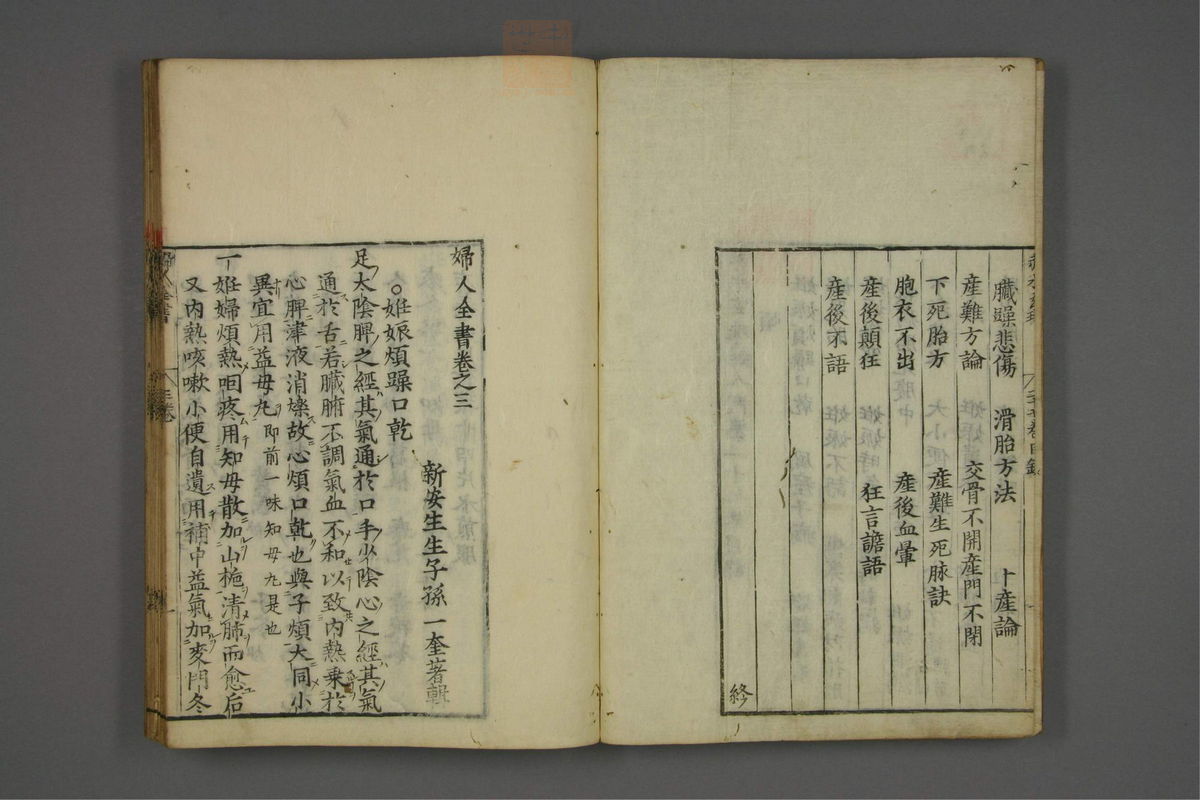 臟躁悲傷　滑胎方法　十産論
産難方論　交骨不開産門不閉
下死胎方　産難生死脉訣
胞衣不出　産後血暈
産後顛狂　狂言譫語
産後不語
終
婦人全書卷之三
新安生生子孫一奎著輯
○姙娠煩躁口乾
足太陰脾之經其氣通於口手少陰心之經其氣
通於舌若臟腑不調氣血不和以致内熱乗於
心脾津液消爍故心煩口乾也與子煩大同小
異宜用益母丸即前一味知母丸是也
一姙婦煩熱咽疼用知母散加山梔清肺而愈后
又内熱咳嗽小便自遺用補中益氣加麥門冬